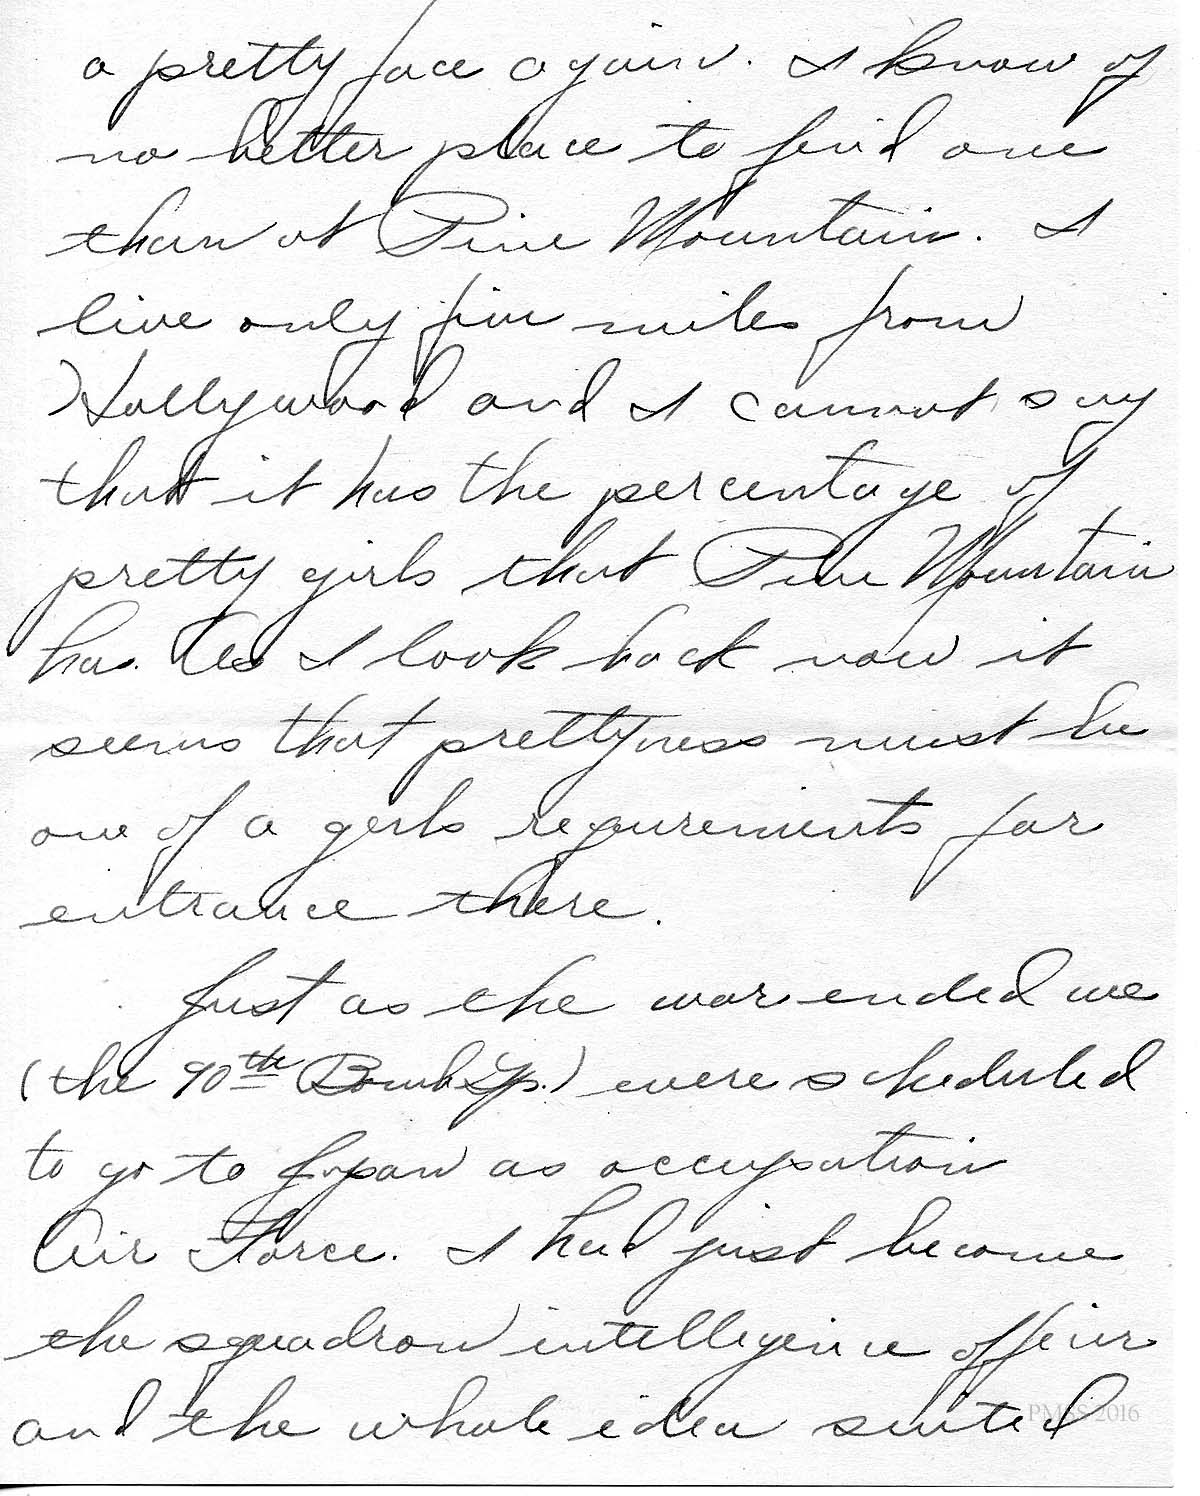 a pretty face again. I know of
no better place to find one
than at Pine Mountain. I
live only five miles from
Hollywood and I cannot say
that it has the percentage of
pretty girls that Pine Mountain
has. As I look back now it
seems that prettyness must be
one of a girls requirements for
entrance there.
Just as the war ended we
(the 90th Bomb Gp.) were scheduled
to go to Japan as occupation
Air Force. I had just become
the squadron intelligence officer
and the whole idea suited
PMSS 2016